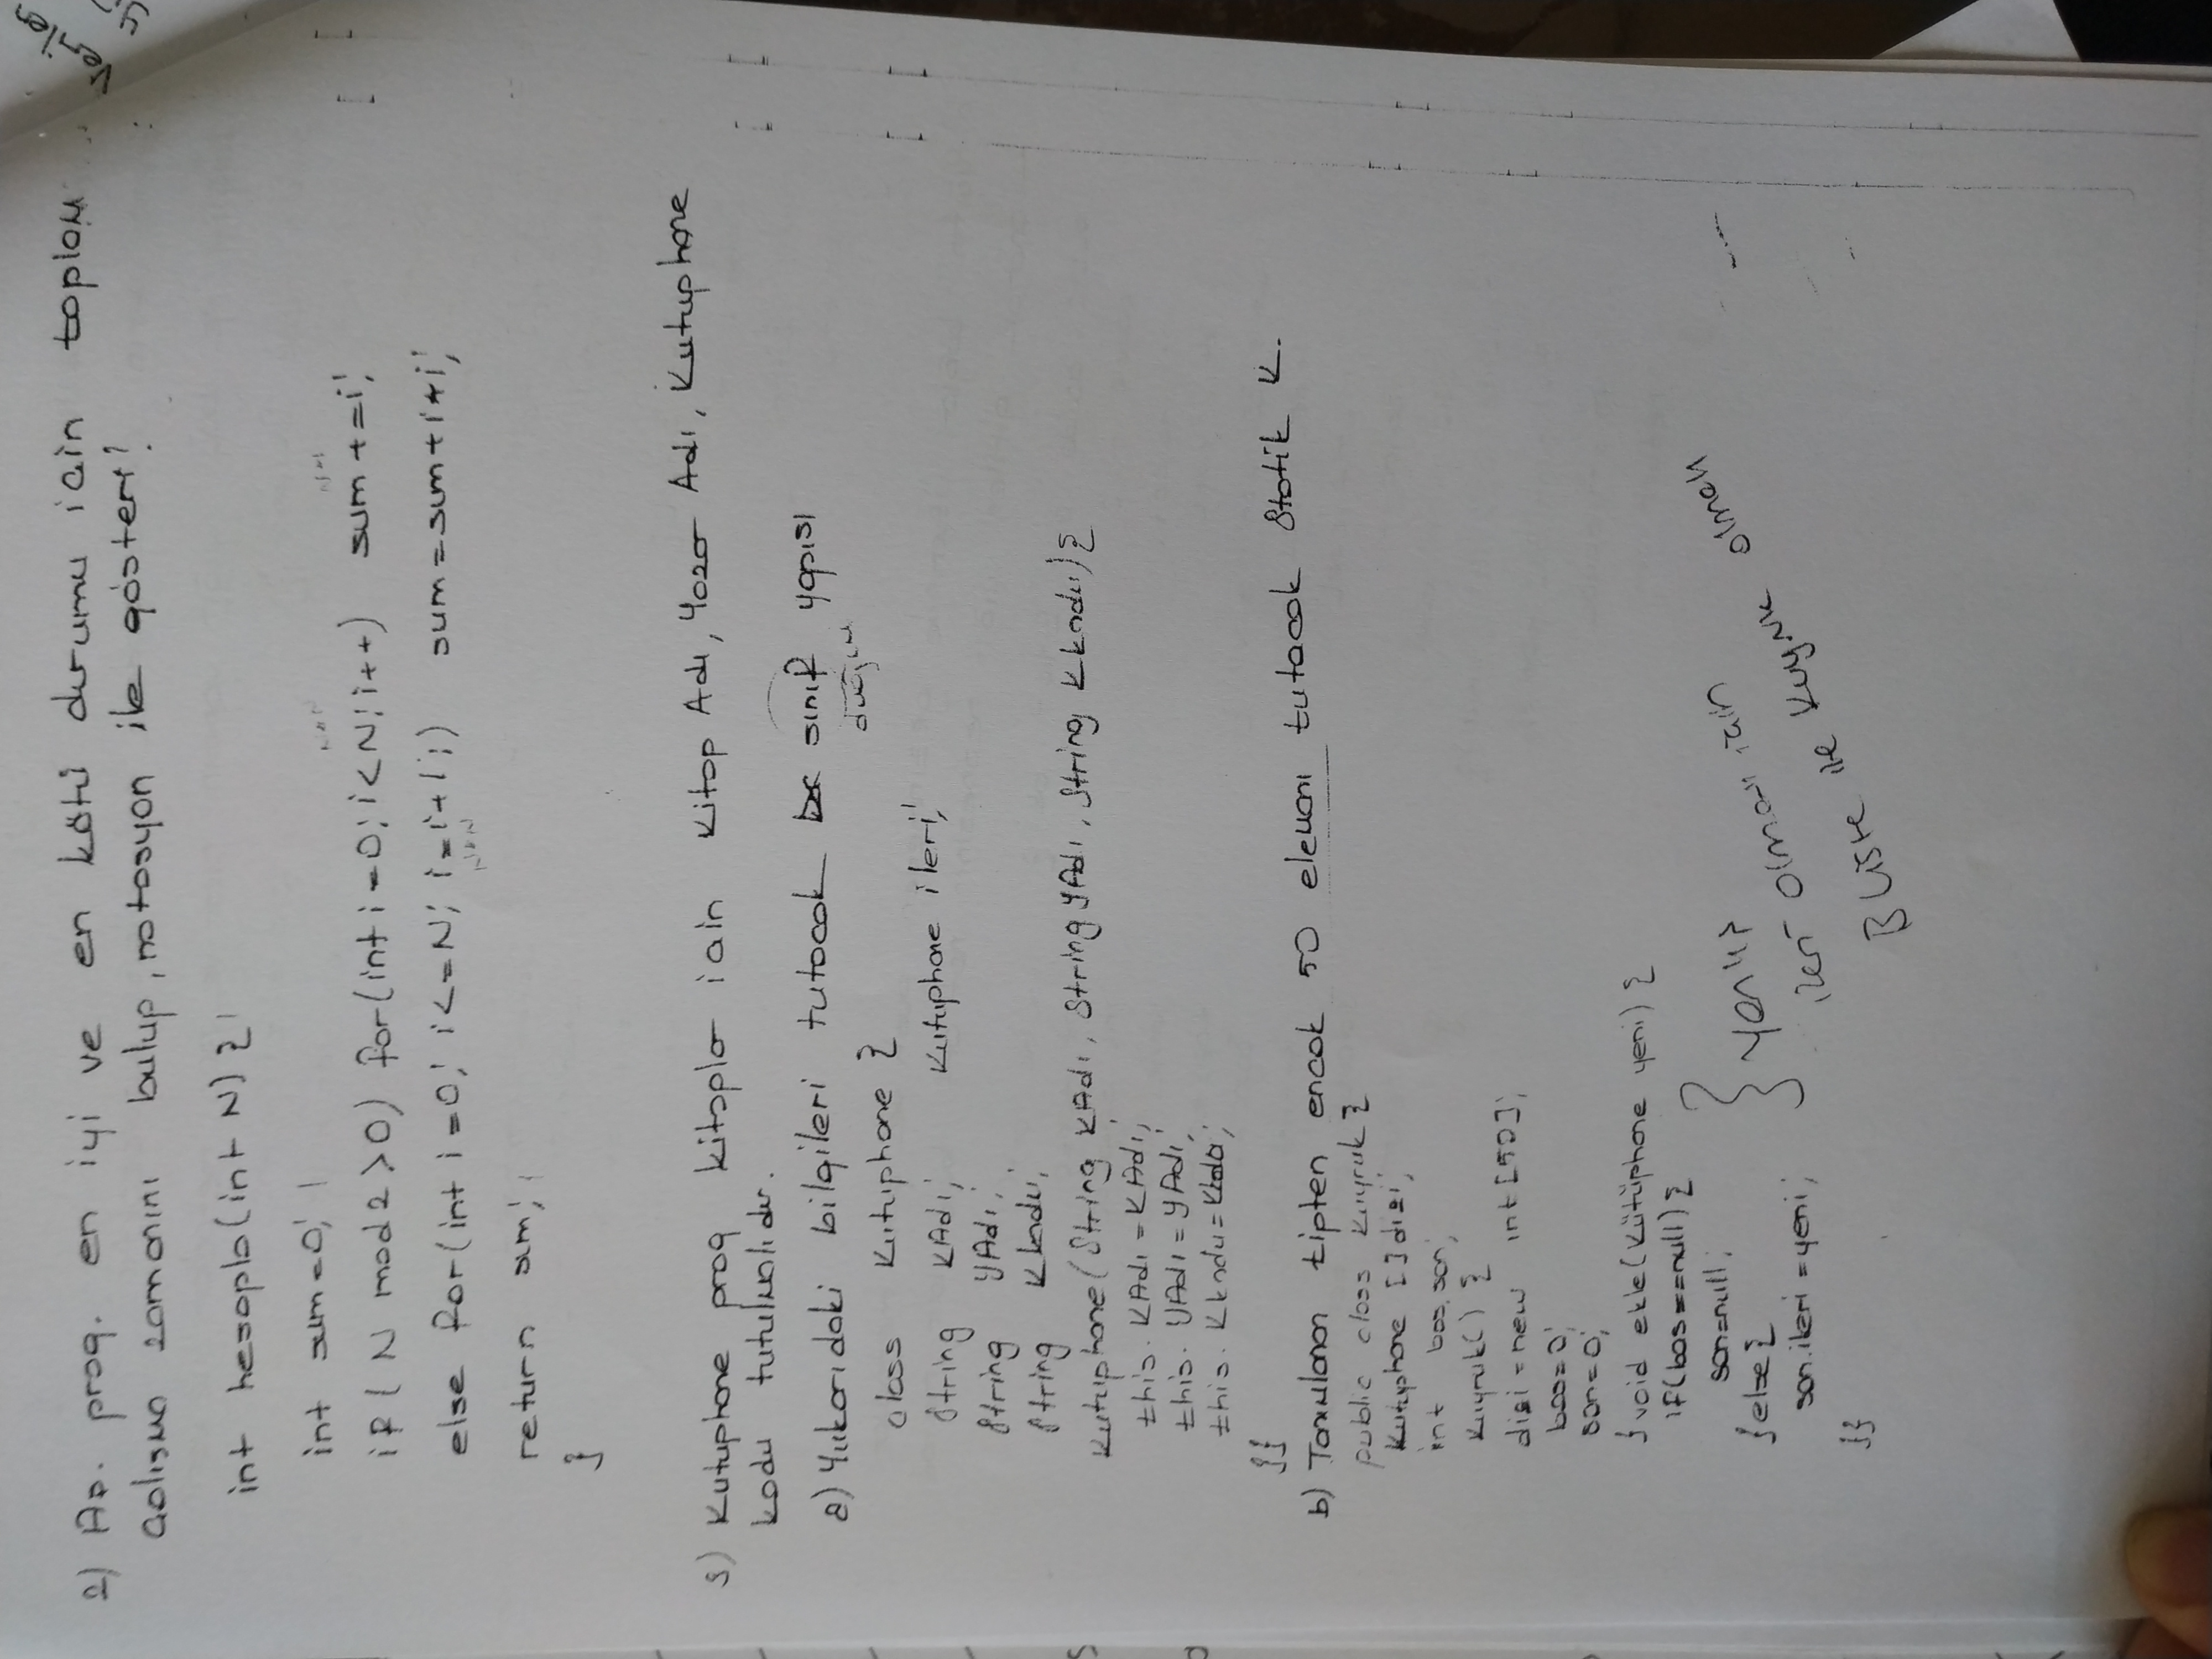 Veriler
2) Aş. prog. en iyi ve en kötü durumu için toplam
çalışma zamanını bulup, notasyon ile göster!
int hesapla(int N) {
int sum=0;
if( N mod 2 > 0) for(int i=0; i<N; i++) sum+=i;
else for(int i=0; i<=N; i=i+1;) sum=sum+i*i;
N*N
return sum;
}
3) Kutuphane prog kitaplar için Kitap Adı, Yazar Adı, Kutuphane
kodu tutulmalıdır.
a) Yukarıdaki bilgileri tutacak sınıf yapısı
düğüm
class Kutuphane {
String KAdı; Kutuphane ileri;
String YAdı;
String Kkodu;
Kutuphane(String KAdı, String YAdı, String Kkodu){
this. KAdı=KAdı;
this. YAdı=YAdı;
this. Kkodu=
}}
b) Tanımlanan tipten ençok 50 elemanı tutacak Statik K.
public class Kuyruk{
Kutuphane []dizi;
int bas, son;
Kuyruk() {
dizi=new int[50];
bas=0;
son=0;
}void ekle(Kütüphane yeni) {
if(bas==null){
son=null;
}else{
son.ileri=yeni;
}}
} Yanlış
ileri olması için
B Liste ile Kuyruk olmalı